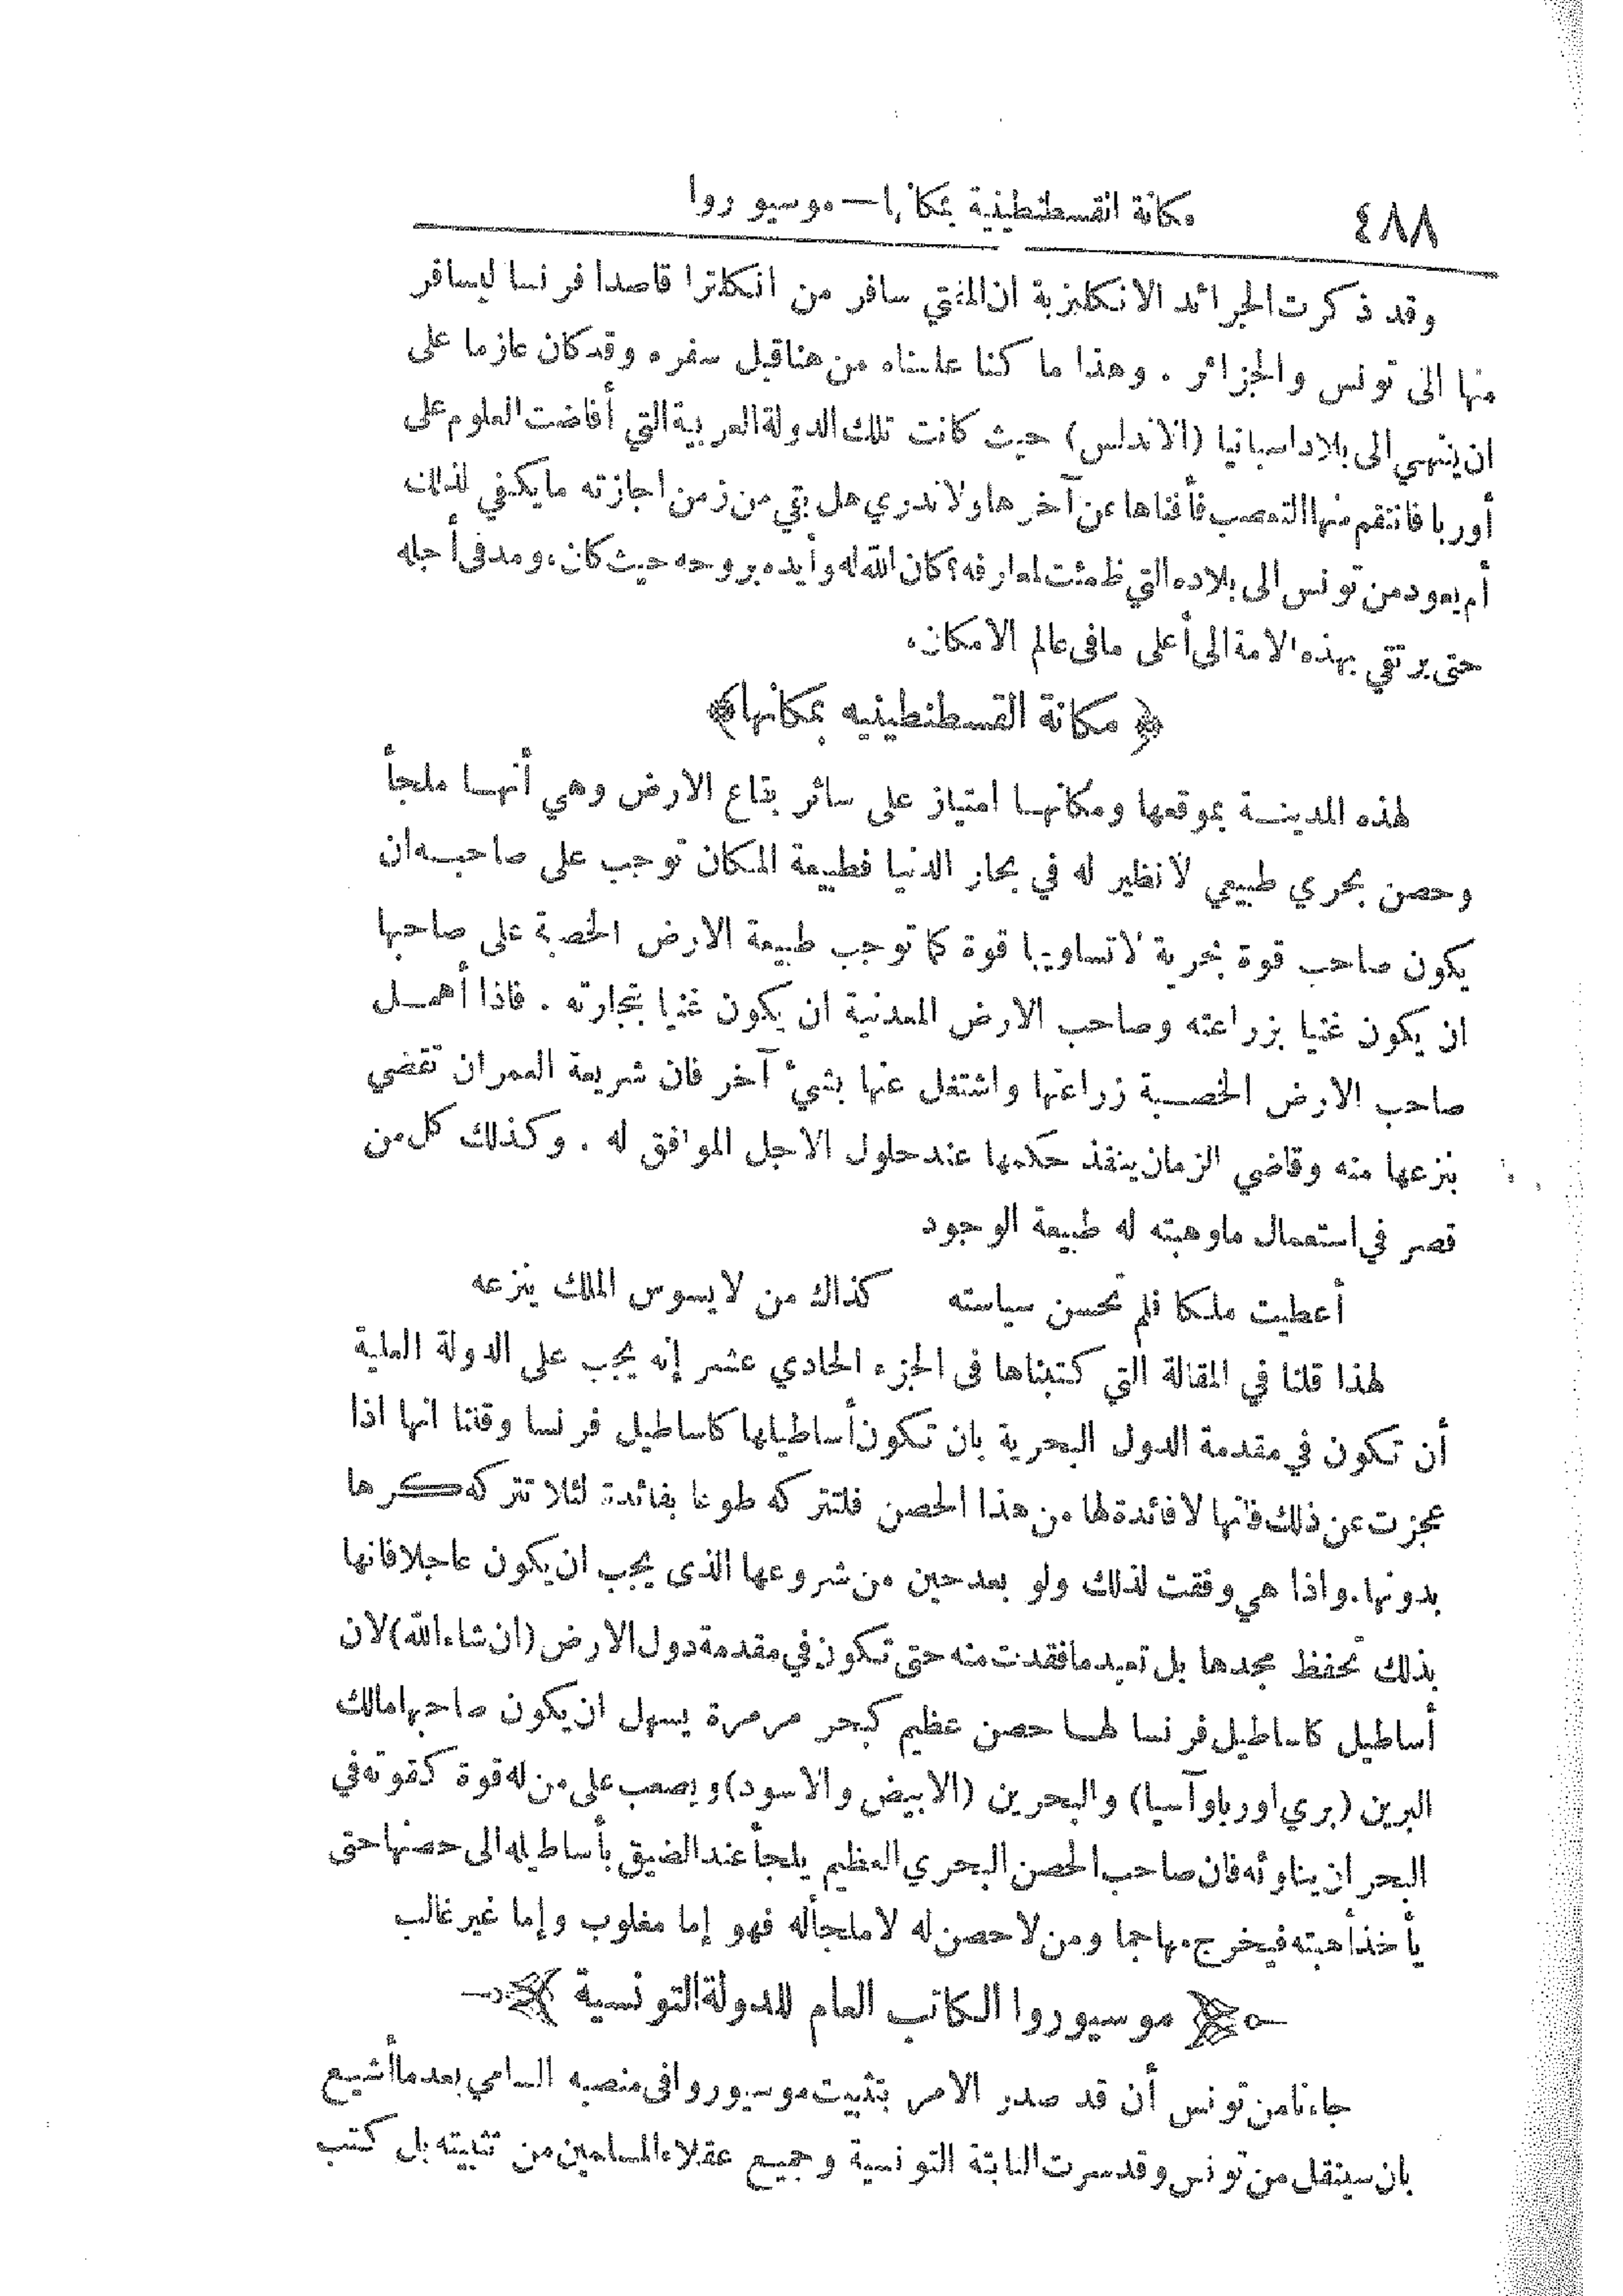 ٤٨٨ مكانة القسطنطينية بمكانها — موسيو روا
وقد ذكرت الجرائد الانكليزية ان المفتي سافر من انكلترا قاصدا فرنسا ليسافر
منها الى تونس والجزائر . وهذا ما كنا علمناه من هنا قبل سفره وقد كان عازما على
ان ينتهي الى بلاد اسبانيا (الاندلس) حيث كانت تلك الدولة العربية التي أفاضت العلوم على
أوربا فانتقم منها التعصب فأفناها عن آخرها ولا ندري هل بقي من زمن اجازته ما يكفي لذلك
أم يعود من تونس الى بلاده التي ظمئت لمعارفه؟ كان الله له وأيده بروحه حيث كان، ومد في أجله
حتى يرتقي بهذه الامة الى أعلى ما في عالم الامكان.
﴿ مكانة القسطنطينيه بمكانها ﴾
لهذه المدينة بموقعها ومكانها امتياز على سائر بقاع الارض وهي أنها ملجأ
وحصن بحري طبيعي لا نظير له في بحار الدنيا فطبيعة المكان توجب على صاحبه ان
يكون صاحب قوة بحرية لا تساويها قوة كما توجب طبيعة الارض الخصبة على صاحبها
ان يكون غنيا بزراعته وصاحب الارض المعدنية ان يكون غنيا بتجارته . فاذا أهمل
صاحب الارض الخصبة زراعتها واشتغل عنها بشيء آخر فان شريعة العمران تقضي
بنزعها منه وقاضي الزمان ينفذ حكمها عند حلول الاجل الموافق له . وكذلك كل من
قصر في استعمال ما وهبته له طبيعة الوجود
أعطيت ملكا فلم تحسن سياسته كذاك من لا يسوس الملك ينزعه
لهذا قلنا في المقالة التي كتبناها في الجزء الحادي عشر إنه يجب على الدولة العلية
أن تكون في مقدمة الدول البحرية بان تكون أساطيلها كاساطيل فرنسا وقلنا انها اذا
عجزت عن ذلك فانها لا فائدة لها من هذا الحصن فلتتركه طوعا بفائدة لئلا تتركه كرها
بدونها. واذا هي وفقت لذلك ولو بعد حين من شروعها الذى يجب ان يكون عاجلا فانها
بذلك تحفظ مجدها بل تعيد ما فقدت منه حتى تكون في مقدمة دول الارض (ان شاء الله) لان
أساطيل كاساطيل فرنسا لها حصن عظيم كبحر مرمرة يسهل ان يكون صاحبها مالك
البرين (بري اوربا وآسيا) والبحرين (الابيض والاسود) ويصعب على من له قوة كقوته في
البحر ان يناوئه فان صاحب الحصن البحري العظيم يلجأ عند الضيق بأساطيله الى حصنها حتى
يأخذ أهبته فيخرج مهاجما ومن لا حصن له لا ملجأ له فهو إما مغلوب وإما غير غالب
﴿ موسيو روا الكاتب العام للدولة التونسية ﴾
جاءنا من تونس أن قد صدر الامر بتثبيت موسيو روا في منصبه السامي بعد ما أشيع
بان سينقل من تونس وقد سرت النابتة التونسية وجميع عقلاء المسلمين من تثبيته بل كتب